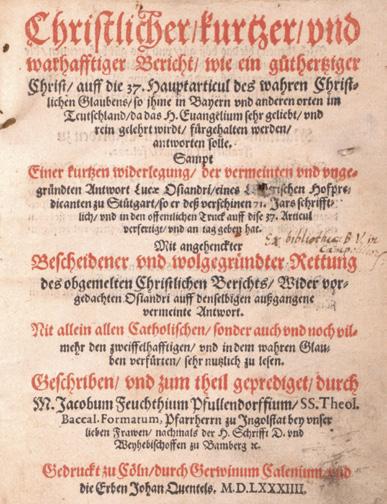 Christlicher/ kurtzer/ vnd
warhafftiger Bericht/ wie ein güthertziger
Christ/ auff die 37. Hauptarticul des wahren Christ-
lichen Glaubens/ so jhme in Bayern vnd anderen orten im
Teutschland/ da das H. Euangelium sehr geliebt/ vnd
rein gelehrt wirdt/ fürgehalten werden/
antworten solle.
Sampt
Einer kurtzen widerlegung/ der vermeinten vnd vnge-
gründten Antwort Lucæ Osiandri/ eines Hofpre-
dicanten zu Stütgart/ so er deß verschinen 71. Jars schrifft-
lich/ vnd in den offentlichen Truck auff dise 37. Articul
verfertigt/ vnd an tag geben hat.
Mit angehenckter
Ex bibliotheca B. V. in
Bescheidener vnd wolgegründter Rettung
des obgemelten Christlichen Berichts/ Wider vor-
gedachten Osiandri auff denselbigen außgangene
vermeinte Antwort.
Nit allein allen Catholischen/ sonder auch vnd noch vil-
mehr den zweiffelhafftigen/ vnd in dem wahren Glau-
ben verfürten/ sehr nutzlich zu lesen.
Geschriben/ vnd zum theil geprediget/ durch
M. Jacobum Feuchthium Pfullendorffium/ SS. Theol.
Baccal. Formatum, Pfarrherrn zu Ingolstat bey vnser
lieben Frawen/ nachmals der H. Schrifft D. vnd
Weyhebischoffen zu Bamberg ꝛc.
Gedruckt zu Cöln/ durch Gerwinum Calenium/ vnd
die Erben Johan Quentels. M.D.LXXXIIII.